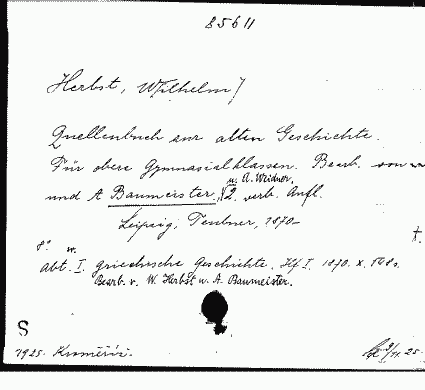 85611
Herbst, Wilhelm
Quellenbuch zur alten Geschichte.
Für obere Gymnasialklassen. Bearb. von
u. A. Weidner.
und A Baumeister. 2. verb. Aufl.
Leipzig, Teubner, 1870-
8°. w.
Abt. I. griechische Geschichte. Hf I. 1870. X. 168s.
Bearb. v. W. Herbst u. A. Baumeister.
S
1925. Kroměříž.